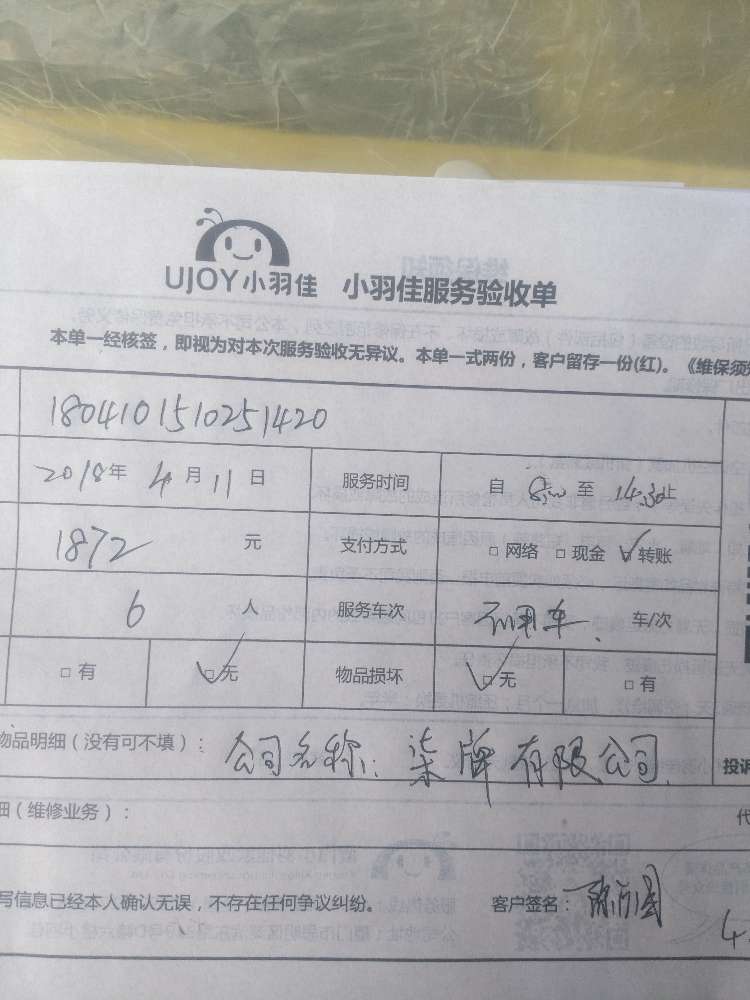 UJOY小羽佳 小羽佳服务验收单
本单一经核签，即视为对本次服务验收无异议。本单一式两份，客户留存一份(红)。《维保须知
1804101510251420
2018年 4月 11日 服务时间 自 8:00 至 14:30止
1872 元 支付方式 □网络 □现金 ☑转账
6 人 服务车次 不用车、 车/次
□有 ☑无 物品损坏 ☑无 □有
物品明细（没有可不填）：公司名称：柒牌有限公司
投诉
细（维修业务）：
代
写信息已经本人确认无误，不存在任何争议纠纷。 客户签名：
4.